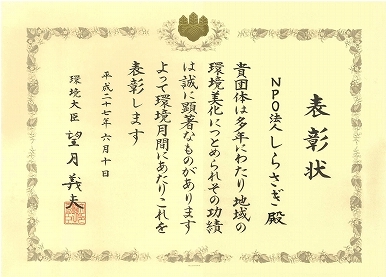 表彰状
NPO法人しらさぎ殿
貴団体は多年にわたり地域の
環境美化につとめられその功績
は誠に顕著なものがあります
よって環境月間にあたりこれを
表彰します
平成二十七年六月十日
環境大臣 望月義夫